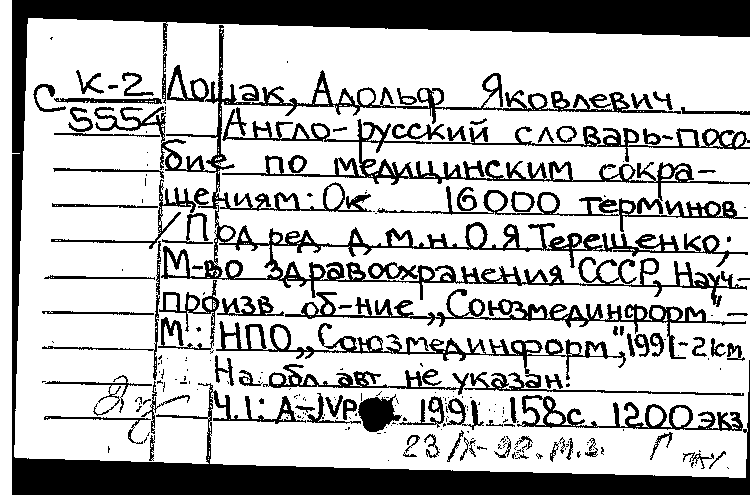 К-2 Лошак, Адольф Яковлевич.
С 5554 Англо-русский словарь-посо-
бие по медицинским сокра-
щениям: Ок. 16000 терминов
/ Под ред. д.м.н. О.Я. Терещенко;
М-во здравоохранения СССР, Науч-
произв. об-ние „Союзмединформ" –
М.: НПО „Союзмединформ", 1991 - 2 km
На обл. авт. не указан.
Ч.1: A-JVP 1991. 158с. 1200 экз.
23/X-92. М.З.